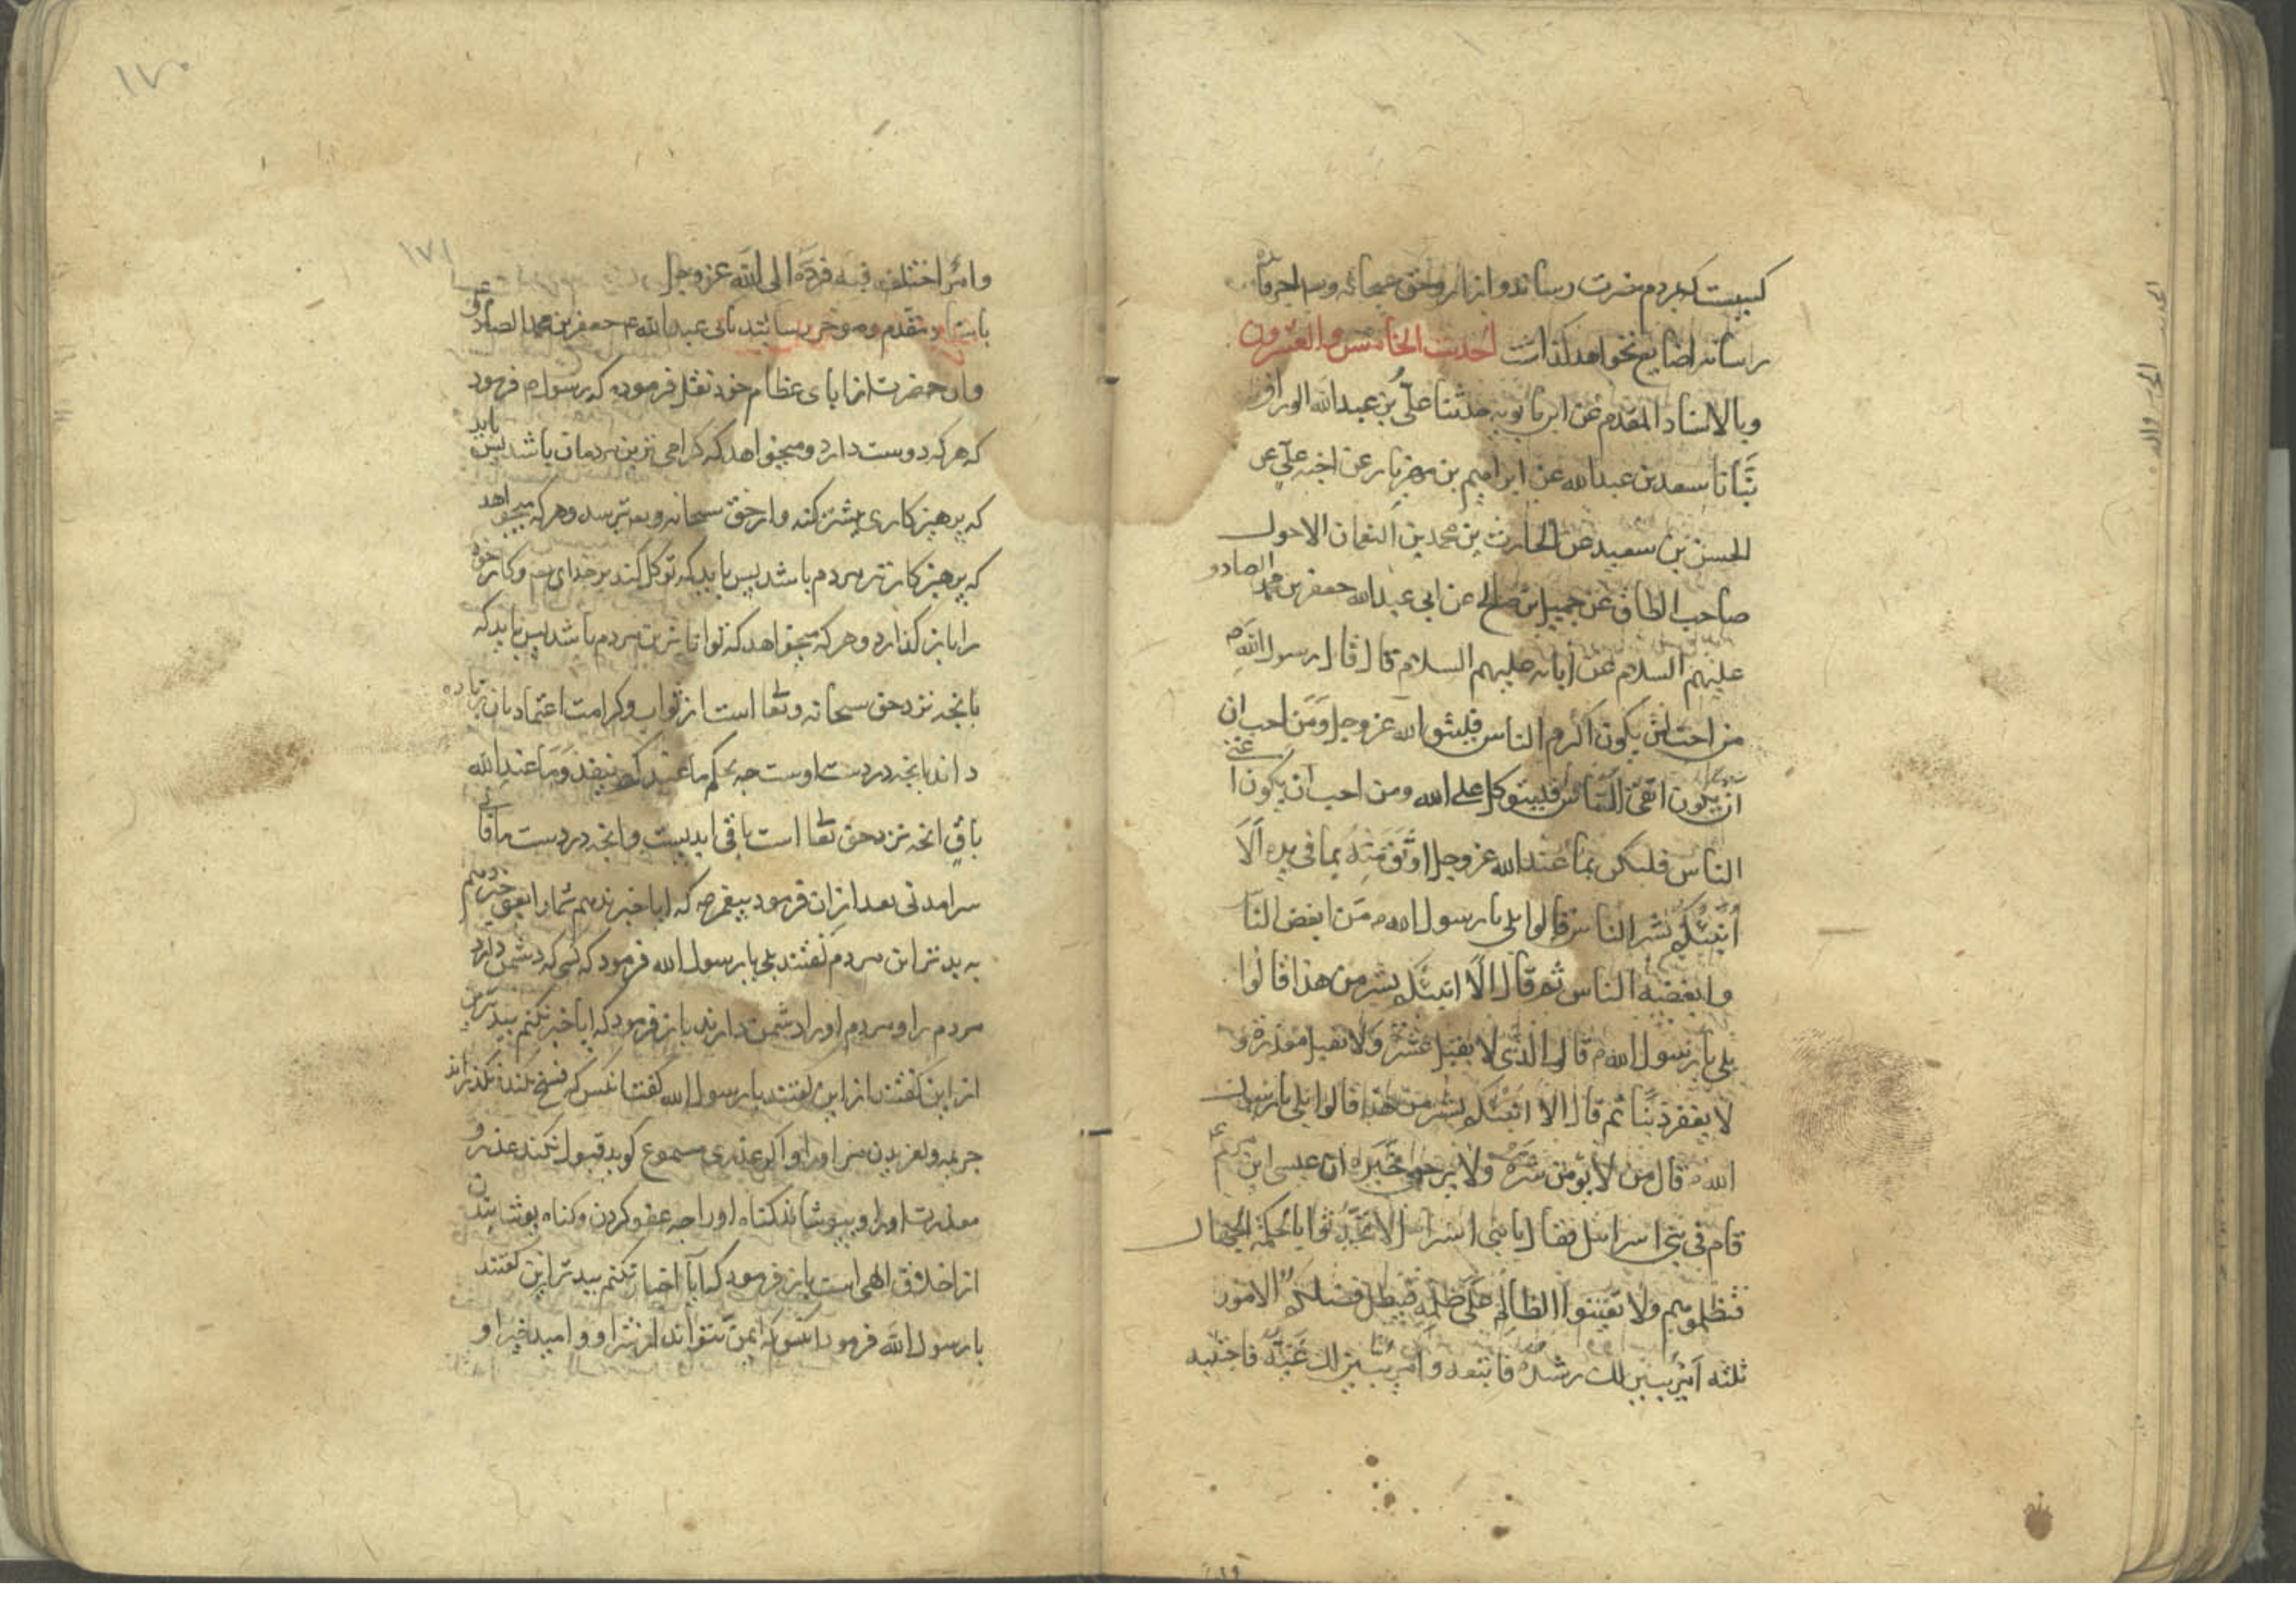 کسیست که بمردم مضرت رساند و از انرو حق سبحانه و تعا اجر فایده
رساندن را ضایع نخواهد گذاشت احدیث الخامس والعشرون
وبالاسناد المقدم عن ابن بابویه حدثنا علی بن عبدالله الوراق
ثنانا سعد بن عبدالله عن ابراهیم بن مهزیار عن اخیه علی عن
الحسن بن سعید عن الحارث بن محمد بن النعمان الاحول
صاحب الطاق عن جمیل ابن صالح عن ابی عبدالله جعفر بن محمد الصادق
علیهم السلام عن ابائه علیهم السلام قال قال رسول الله ص
من احب ان یکون اکرم الناس فلیتق الله عز وجل ومن احب ان
ان یکون اتقی الناس فلیتوکل علی الله ومن احب ان یکون اغنی
الناس فلیکن بما عندالله عز وجل اوثق منه بما فی یده الا
انبئکم بشر الناس قالوا بلی یا رسول الله ص من ابغض الناس
وابغضه الناس ثم قال الا انبئکم بشر من هذا قالوا
بلی یا رسول الله ص قال الذی لا یقیل عثرة ولا تقبل معذرة و
لا یغفر ذنبا ثم قال الا انبئکم بشر من هذا قالوا بلی یا رسول
الله ص قال من لا یؤمن شره ولا یرجی خیره ان عیسی ابن مریم ع
قام فی بنی اسرائیل فقال یا بنی اسرائیل لا تحدثوا بالحکمة الجهال
فتظلموهم ولا تعینوا الظالم علی ظلمه فیبطل فضلکم الامور
ثلثه امر تبین لک رشده فاتبعه وامر تبین لک غیه فاجتنبه
١٧٠
١٧١
وامر اختلف فیه فرده الی الله عز وجل
باسناد متقدم و موخر رسانیند بابی عبدالله ع جعفر بن محمد الصادق
وان حضرت از ابای عظام خود نقل فرموده که رسول ص فرمود
که هر که دوست دارد و میخواهد که گرامی ترین مردمان باشد پس باید
که پرهیزکاری بیشتر کند و از حق سبحانه و تعا ترسد و هر که میخواهد
که پرهیزکارتر مردم باشد پس باید که توکل کند بر خدای تعا و کار خود
را باز گذارد و هر که میخواهد که تواناترین مردم باشد پس باید که
بانچه نزد حق سبحانه وتعا است از ثواب و کرامت اعتماد بان زیاده
داند بانچه در دست اوست چه بحکم ما عندکم ینفد وما عندالله
باق انچه نزد حق تعا است باقی ابدیست و انچه در دست ما فانی
سرامدنی بعد از ان فرمود پیغمبر ص که ایا خبر ندهم شما را یعنی خبر دهم
به بدترین مردم گفتند بلی یا رسول الله فرمود که کسی که دشمن دارد
مردم را و مردم او را دشمن دارند باز فرمود که ایا خبر نکنم ببدترین
از این گفتند از این گفتند یا رسول الله گفت انکس که فسخ نکند نگذراند
جریمه و لغزیدن مر او را و اگر عذری مسموع گوید قبول نکند عذر و
معذرت او را و بپوشاند گناه او را چه عفو کردن و گناه پوشانیدن
از اخلاق الهی است باز فرمود که ایا اخبار نکنم ببدتر از این گفتند
یا رسول الله فرمود انکس که ایمن نتواند از شر او و امید خیر او